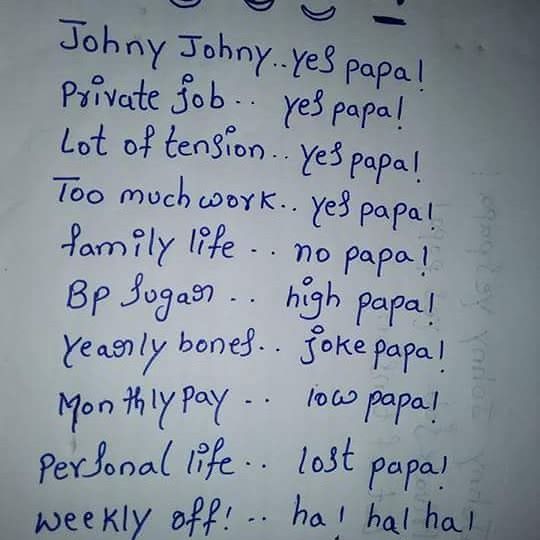 Johny Johny..yes papa!
Private job.. yes papa!
Lot of tension.. yes papa!
Too much work.. yes papa!
family life.. no papa!
Bp sugar.. high papa!
yearly bones.. joke papa!
Monthly pay.. low papa!
personal life.. lost papa!
weekly off!.. ha! ha! ha!